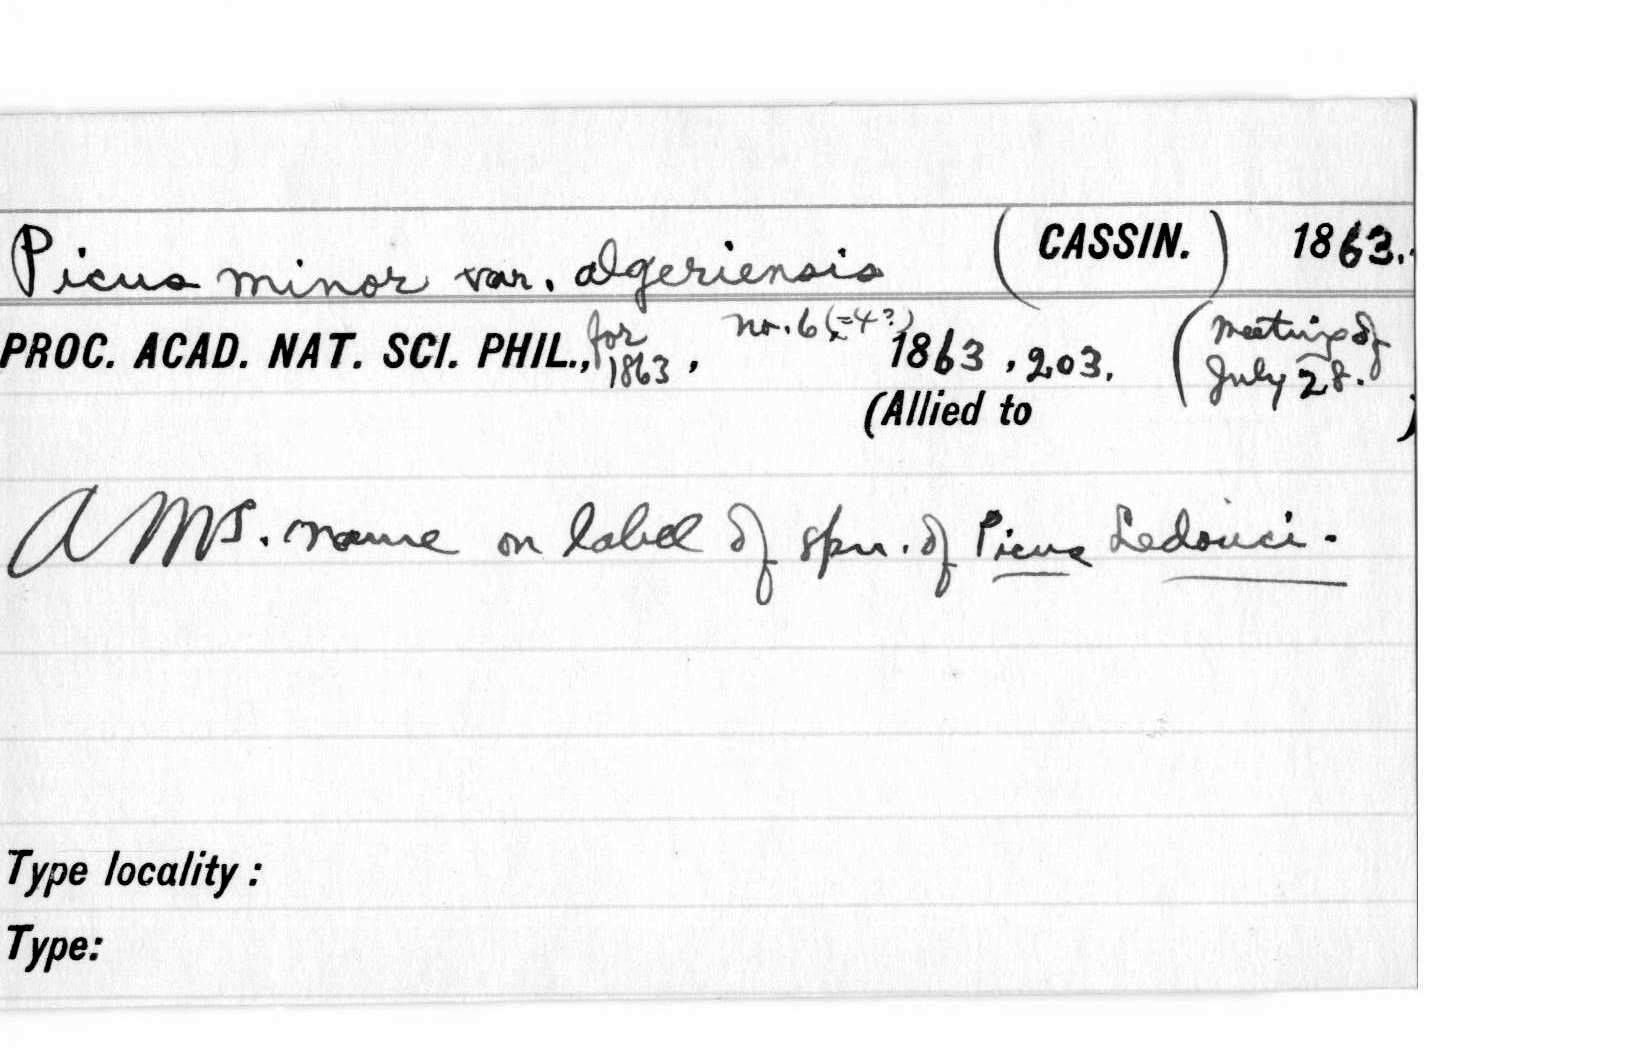 Picus minor var. algeriensis (CASSIN.) 1863.
PROC. ACAD. NAT. SCI. PHIL., for 1863, no. 6 (=4?) 1863, 203. (Meeting of July 28.
(Allied to )
A MS. name on label of spn. of Picus Ledouci.
Type locality:
Type: